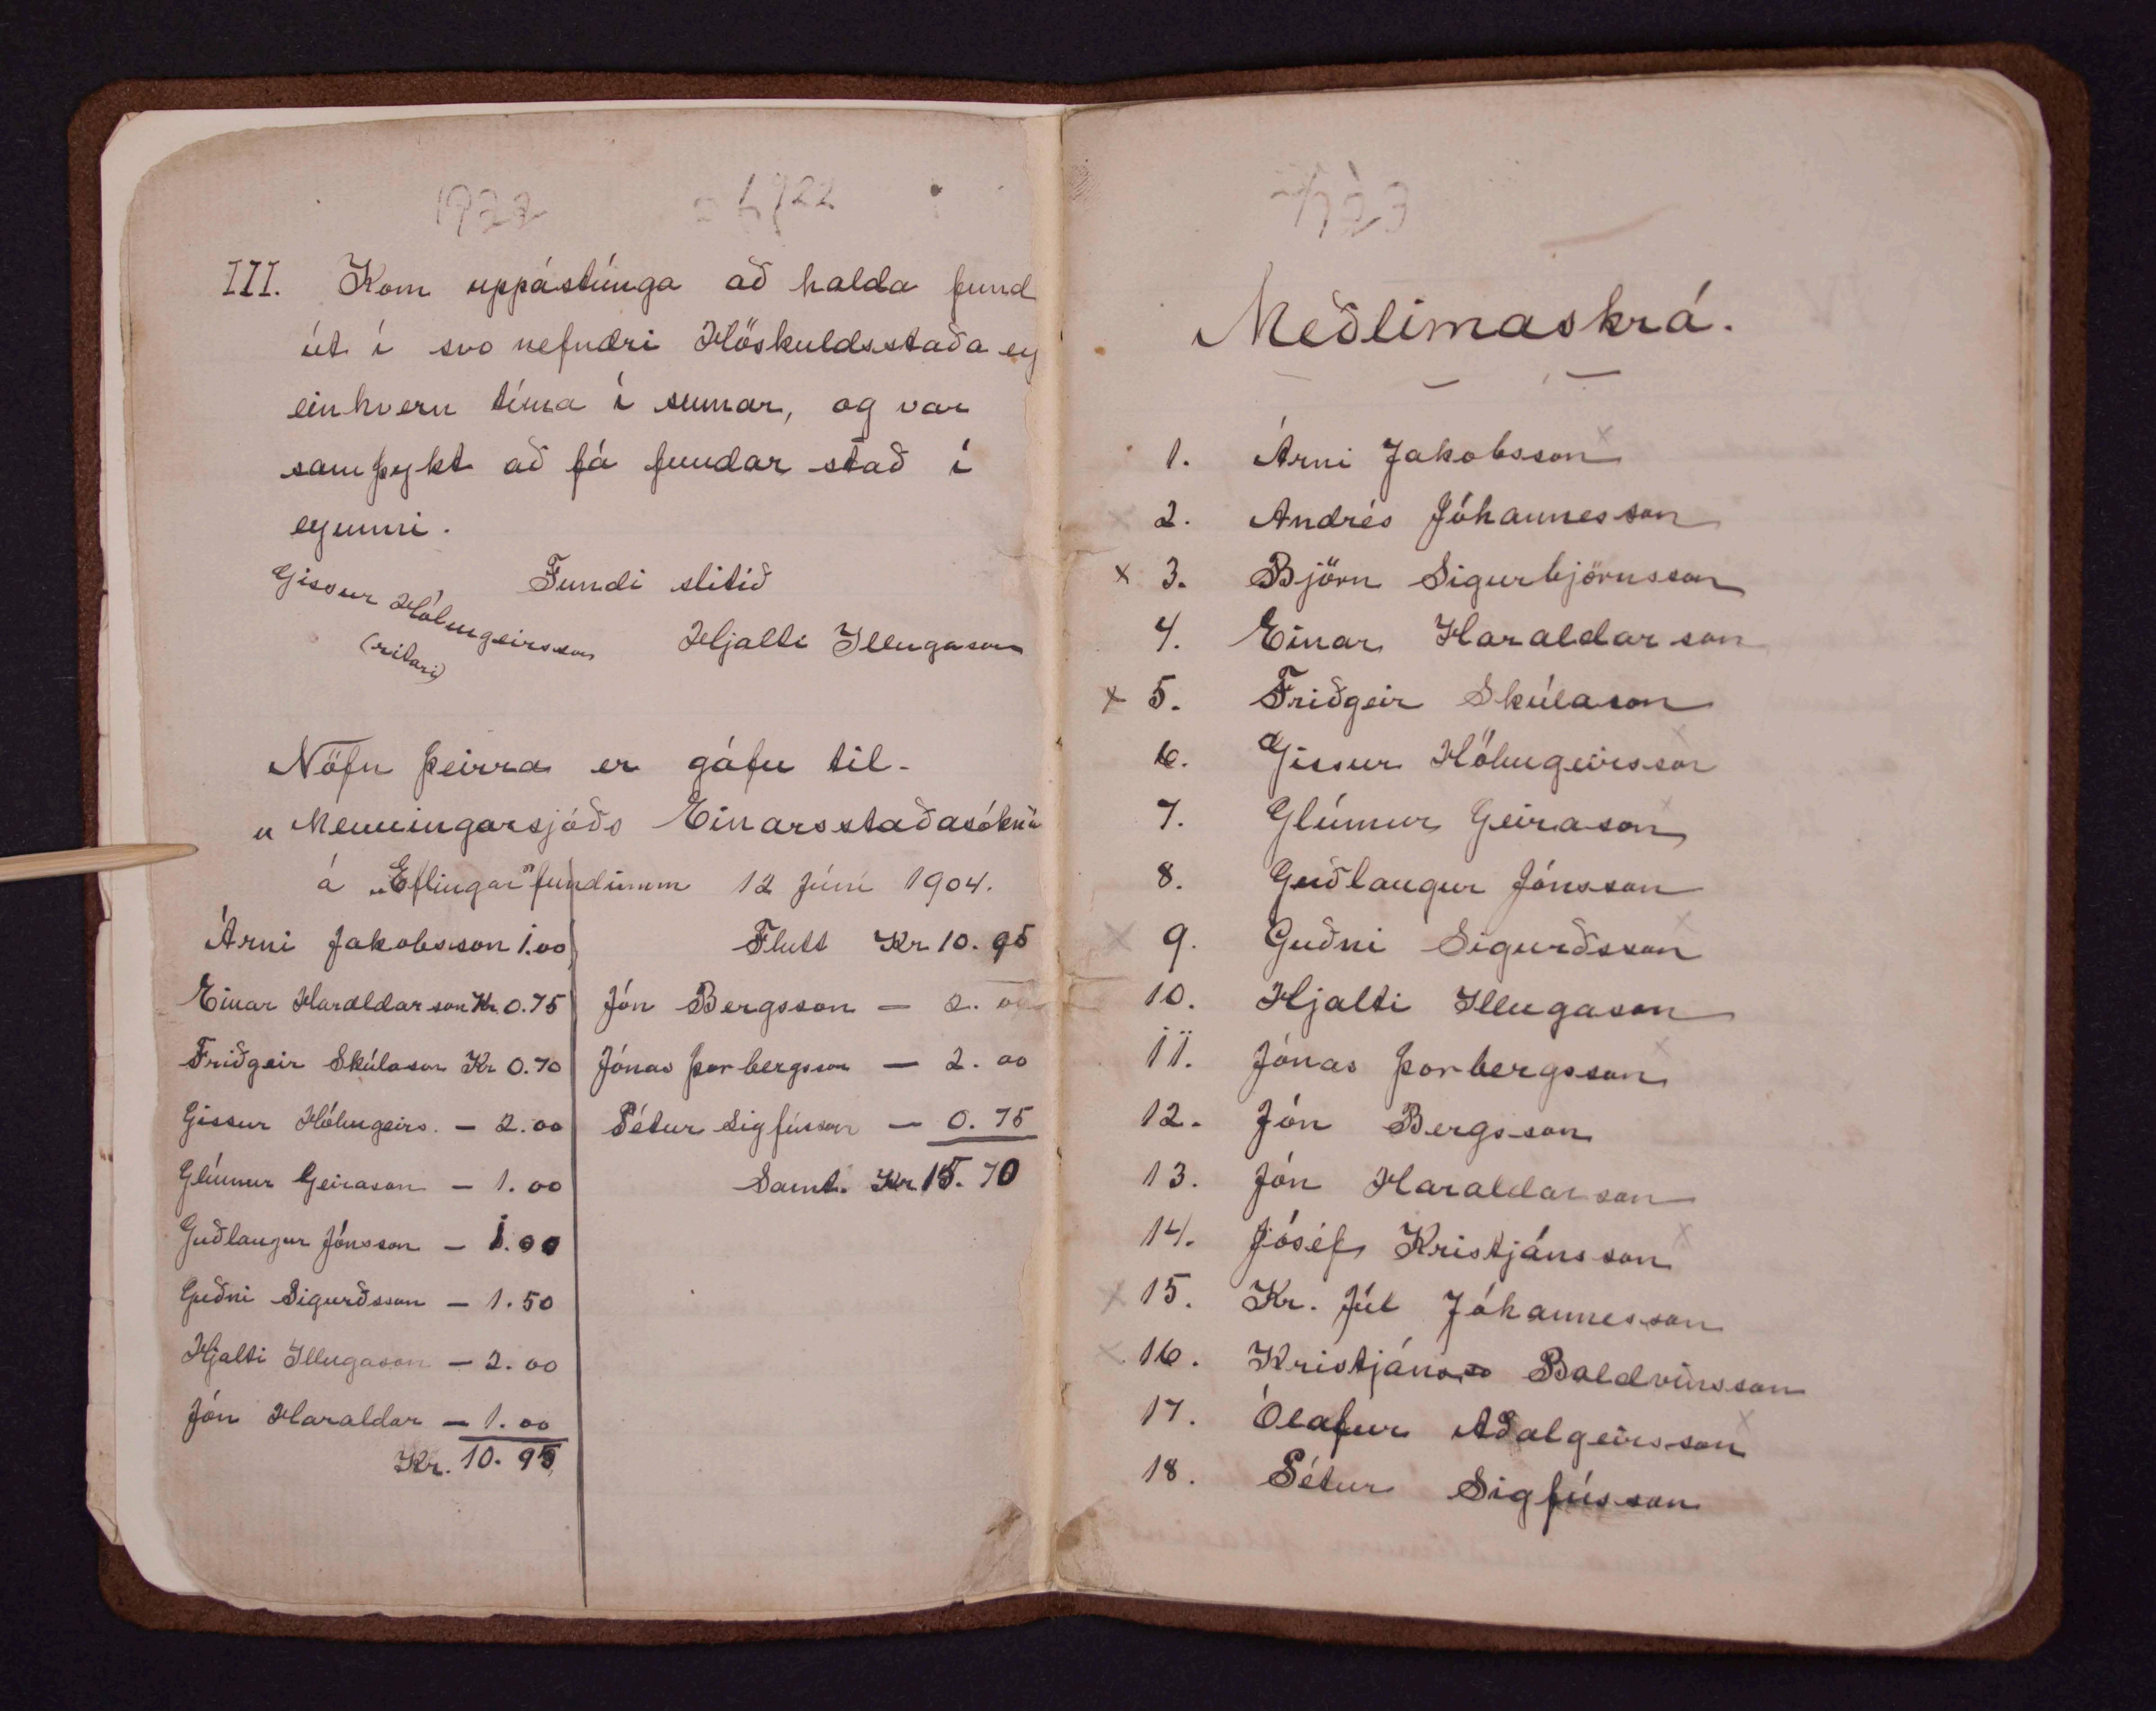 1922 1922
III. Kom uppástúnga að halda fund
út í svo nefndri Höskuldsstaða ey
einhvern tíma í sumar, og var
samþykt að fá fundar stað í
eyunni.
Fundi slitið
Gissur Hólmgeirsson
(ritari)
Hjalti Illugason
Nöfn þeirra er gáfu til-
„Menningarsjóðs Einarsstaðasóknar
á „Eflingar" fundinum 12 Júní 1904.
Árni Jakobsson 1.00
Einar Haraldarson Kr. 0.75
Friðgeir Skúlason Kr 0.70
Gissur Hólmgeirs. – 2.00
Glúmur Geirason – 1.00
Guðlaugur Jónsson – 1.00
Guðni Sigurðsson – 1.50
Hjalti Illugason – 2.00
Jón Haraldar – 1.00
Kr. 10.95
Flutt Kr 10.95
Jón Bergsson – 2.00
Jónas Þorbergsson – 2.00
Pétur Sigfússon – 0.75
Samt. Kr 15.70
Meðlimaskrá.
1. Árni Jakobsson x
x 2. Andrés Jóhannesson
x 3. Björn Sigurbjörnsson
4. Einar Haraldarson
x 5. Friðgeir Skúlason
6. Gissur Hólmgeirsson x
7. Glúmur Geirason x
8. Guðlaugur Jónsson
x 9. Guðni Sigurðsson x
10. Hjalti Illugason
11. Jónas Þorbergsson x
12. Jón Bergsson
13. Jón Haraldarson
14. Jóséf Kristjánsson x
x 15. Kr. Júl Jóhannesson
x 16. Kristjánsso Baldvinsson
17. Ólafur Aðalgeirsson x
18. Pétur Sigfússon